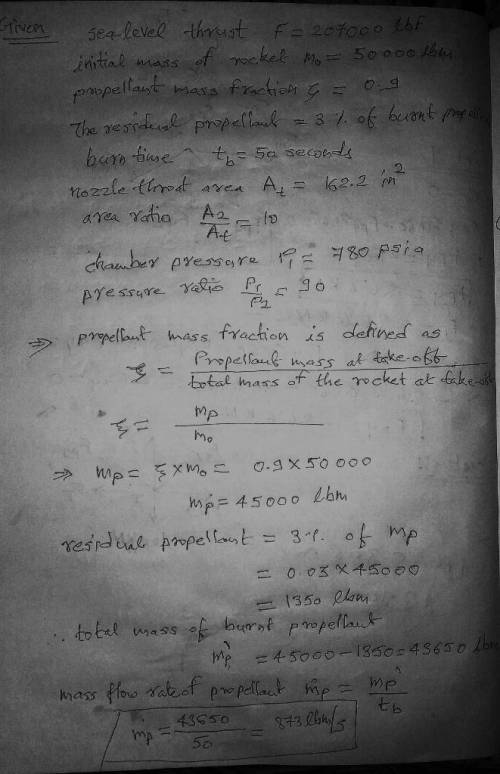 Given
sea-level thrust F = 207000 lbf
initial mass of rocket m₀ = 50000 lbm
propellant mass fraction ξ = 0.9
The residual propellant = 3 % of burnt
burn time t_b = 50 seconds
nozzle throat area A_t = 162.2 in²
area ratio A₂/A_t = 10
chamber pressure P₁ = 780 psia
pressure ratio P₁/P₂ = 90
⇒ propellant mass fraction is defined as
ξ = Propellant mass at take-off / total mass of the rocket at take-off
ξ = m_p / m₀
⇒ m_p = ξ × m₀ = 0.9 × 50000
m_p = 45000 lbm
residual propellant = 3 % of m_p
= 0.03 × 45000
= 1350 lbm
∴ total mass of burnt propellant
m_p` = 45000 – 1350 = 43650 lbm
mass flow rate of propellant ṁ_p = m_p` / t_b
ṁ_p = 43650 / 50 = 873 lbm/s